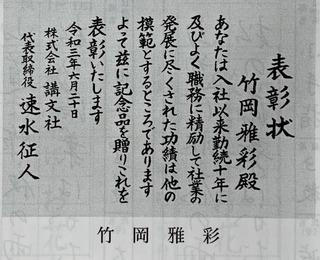 表彰状
竹岡雅彩殿
あなたは入社以来勤続十年に
及びよく職務に精励して社業の
発展に尽くされた功績は他の
模範とするところであります
よって茲に記念品を贈りこれを
表彰いたします
令和三年六月二十日
株式会社 講文社
代表取締役 速水征人
竹岡雅彩